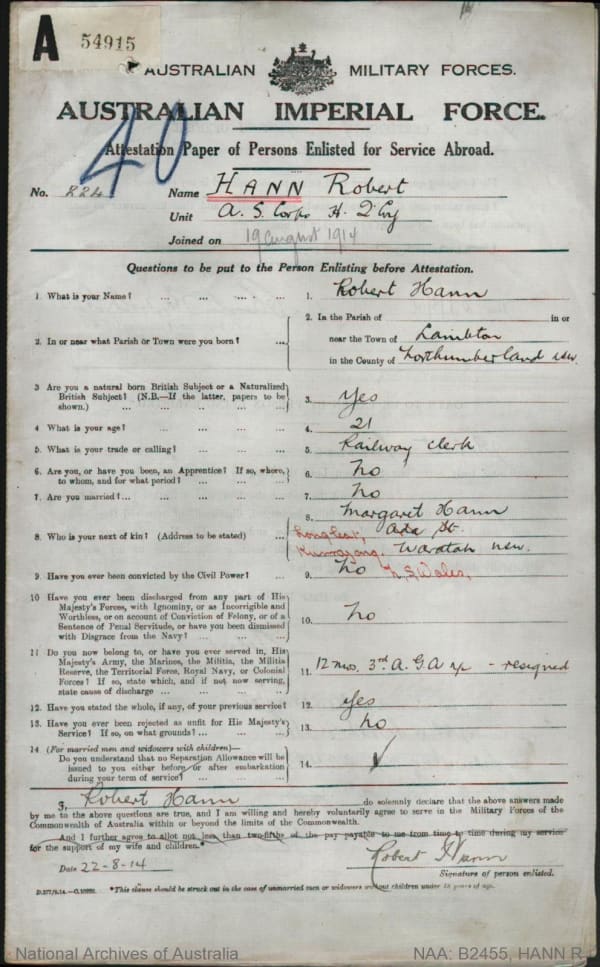 A 54915
AUSTRALIAN MILITARY FORCES.
AUSTRALIAN IMPERIAL FORCE.
40
Attestation Paper of Persons Enlisted for Service Abroad.
No. 224 Name HANN Robert
Unit A. S. Corps H. Q'
Joined on 19 August 1914
Questions to be put to the Person Enlisting before Attestation.
1 What is your Name? ... ... ... ... 1. Robert Hann
2. In or near what Parish or Town were you born? ... 2. In the Parish of in or
near the Town of Lambton
in the County of Northumberland NSW.
3 Are you a natural born British Subject or a Naturalized
British Subject? (N.B.—If the latter, papers to be
shown.) ... ... ... ... 3. Yes
4 What is your age? ... ... ... ... 4. 21
5. What is your trade or calling? ... ... ... 5. Railway Clerk
6. Are you, or have you been, an Apprentice? If so, where,
to whom, and for what period? ... ... ... 6. No
7. Are you married? ... ... ... ... 7. No
8. Who is your next of kin? (Address to be stated) ... 8. Margaret Hann
Longleat, Ada St.
Kurrajong. Waratah NSW.
N.S. Wales.
9. Have you ever been convicted by the Civil Power? ... 9. No
10 Have you ever been discharged from any part of His
Majesty's Forces, with Ignominy, or as Incorrigible and
Worthless, or on account of Conviction of Felony, or of a
Sentence of Penal Servitude, or have you been dismissed
with Disgrace from the Navy? ... ... ... 10. No
11 Do you now belong to, or have you ever served in, His
Majesty's Army, the Marines, the Militia, the Militia
Reserve, the Territorial Force, Royal Navy, or Colonial
Forces? If so, state which, and if not now serving,
state cause of discharge ... ... ... 11. 12 mos. 3rd A. G. A - resigned
12. Have you stated the whole, if any, of your previous service? 12. Yes
13. Have you ever been rejected as unfit for His Majesty's
Service? If so, on what grounds? ... ... 13. No
14 (For married men and widowers with children)—
Do you understand that no Separation Allowance will be
issued to you either before or after embarkation
during your term of service? ... ... ... 14. ✓
I, Robert Hann do solemnly declare that the above answers made
by me to the above questions are true, and I am willing and hereby voluntarily agree to serve in the Military Forces of the
Commonwealth of Australia within or beyond the limits of the Commonwealth.
And I further agree to allot not less than two-fifths of the pay payable to me from time to time during my service
for the support of my wife and children.*
Date 22-8-14 Robert Hann
Signature of person enlisted.
*This clause should be struck out in the case of unmarried men or widowers without children under 18 years of age.
National Archives of Australia NAA: B2455, HANN R